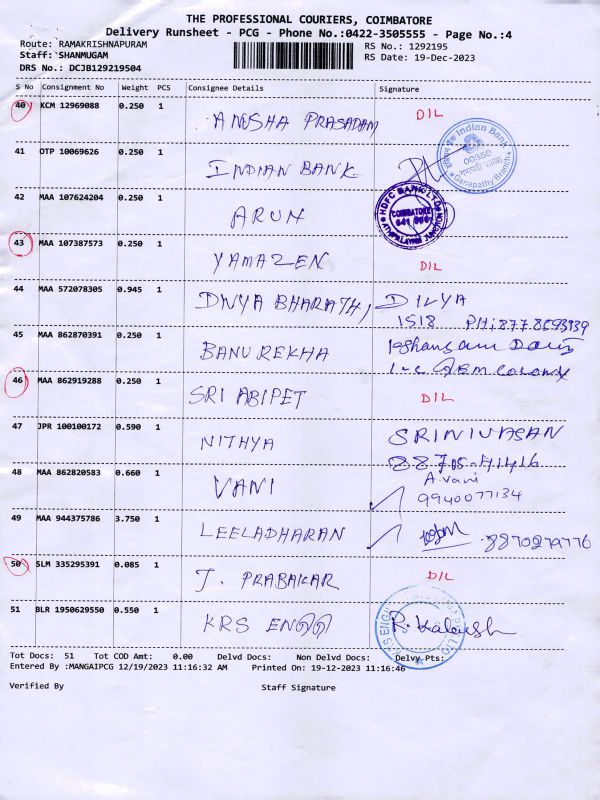 THE PROFESSIONAL COURIERS, COIMBATORE
Delivery Runsheet - PCG - Phone No.:0422-3505555 - Page No.:4
Route: RAMAKRISHNAPURAM RS No.: 1292195
Staff: SHANMUGAM RS Date: 19-Dec-2023
DRS No.: DCJB129219504
S No Consignment No Weight PCS Consignee Details Signature
40 KCM 12969088 0.250 1 ANUSHA PRASADAM DIL
41 OTP 10069626 0.250 1 INDIAN BANK
Indian Bank 00350 Ganapathy Branch
42 MAA 107624204 0.250 1 ARUN
HDFC BANK LTD COIMBATORE
43 MAA 107387573 0.250 1 YAMAZEN DIL
44 MAA 572078305 0.945 1 DIVYA BHARATHI DIVYA
1518 PH:
45 MAA 862870391 0.250 1 BANU REKHA
46 MAA 862919288 0.250 1 SRI ABIPET DIL
47 JPR 100100172 0.590 1 NITHYA SRINIVASAN
48 MAA 862820583 0.660 1 VANI A.vani
9940077134
49 MAA 944375786 3.750 1 LEELADHARAN 8870279776
50 SLM 335295391 0.085 1 J. PRABAKAR DIL
51 BLR 1950629550 0.550 1 KRS ENGG
Tot Docs: 51 Tot COD Amt: 0.00 Delvd Docs: Non Delvd Docs: Delvy Pts:
Entered By :MANGAIPCG 12/19/2023 11:16:32 AM Printed On: 19-12-2023 11:16:46
Verified By Staff Signature